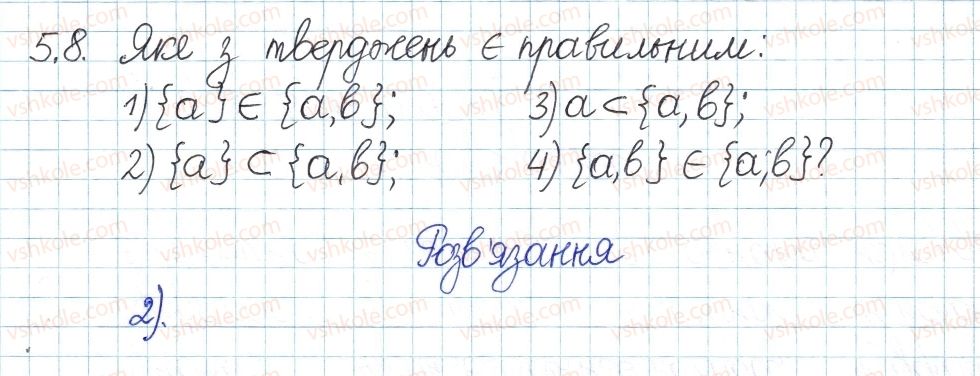 5.8. Яке з тверджень є правильним:
1) {a} ∈ {a,b}; 3) a ⊂ {a,b};
2) {a} ⊂ {a,b}; 4) {a,b} ∈ {a;b}?
Розв'язання
2).